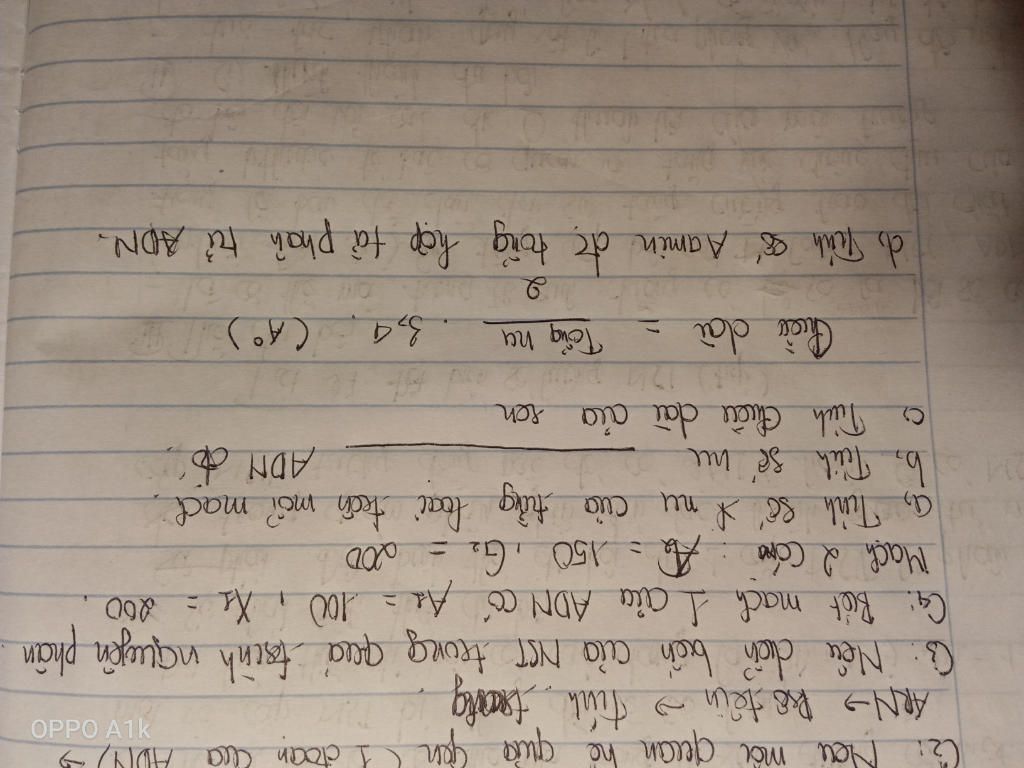 C2: Nêu mối quan hệ giữa gen (1 đoạn của ADN) →
ARN → Prôtêin → Tính trạng.
C3: Nêu diễn biến của NST trong quá trình nguyên phân.
C4: Biết mạch 1 của ADN có A1 = 100, X1 = 200.
Mạch 2 có: A2 = 150, G2 = 200
a, Tính số nu của từng loại trên mỗi mạch.
b, Tính số nu ADN đó.
c, Tính chiều dài của gen
Chiều dài = Tổng nu / 2 . 3,4 (A°)
d, Tính số Aamin đc tổng hợp từ phân tử ADN.
OPPO A1k